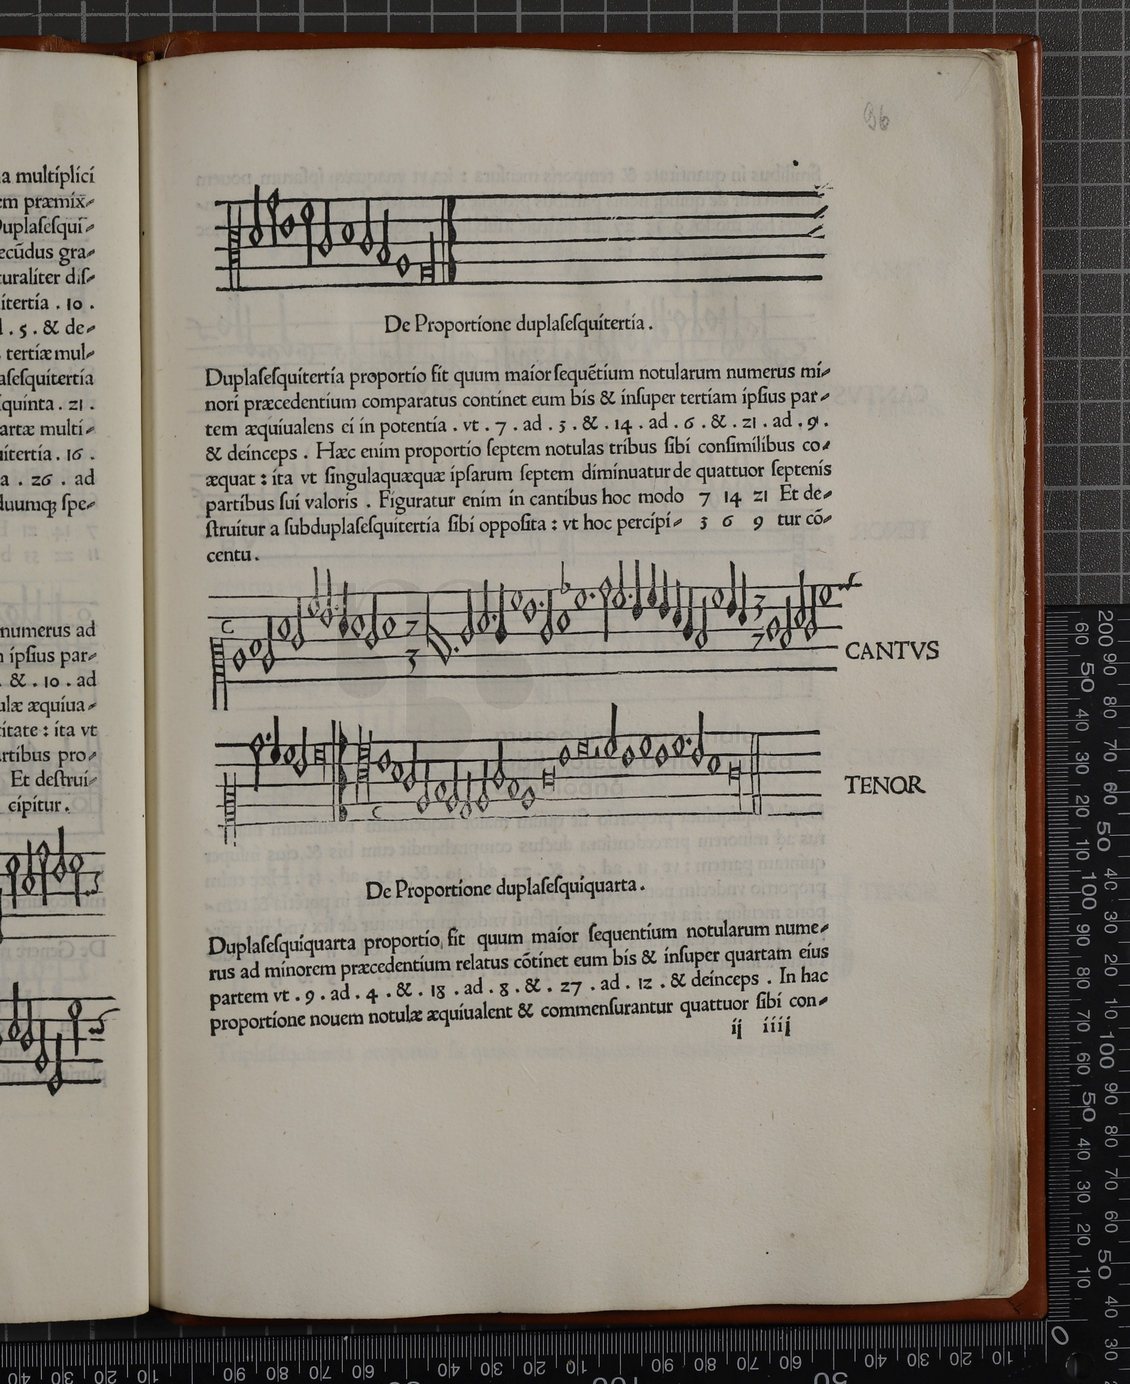 a multiplici
em præmix⸗
Duplaſeſqui⸗
ecūdus gra⸗
turaliter diſ⸗
itertia . 10 .
. 5 . & de⸗
tertiæ mul⸗
aſeſquitertia
quinta . 21 .
artæ multi⸗
uitertia . 16 .
a . 26 . ad
duumq; ſpe⸗
numerus ad
ipſius par⸗
. & . 10 . ad
ulæ æquiua⸗
titate : ita vt
rtibus pro⸗
Et deſtrui⸗
cipitur .
96
De Proportione duplaſeſquitertia .
Duplaſeſquitertia proportio fit quum maior ſequētium notularum numerus mi⸗
nori præcedentium comparatus continet eum bis & inſuper tertiam ipſius par⸗
tem æquiualens ei in potentia . vt . 7 . ad . 3 . & . 14 . ad . 6 . & . 21 . ad . 9 .
& deinceps . Hæc enim proportio ſeptem notulas tribus ſibi conſimilibus co⸗
æquat : ita vt ſingulaquæquæ ipſarum ſeptem diminuatur de quattuor ſeptenis
partibus ſui valoris . Figuratur enim in cantibus hoc modo 7 14 21 Et de⸗
ſtruitur a ſubduplaſeſquitertia ſibi oppoſita : vt hoc percipi⸗ 3 6 9 tur cō⸗
centu .
C 7 3
3 7
CANTVS
C
TENOR
De Proportione duplaſeſquiquarta .
Duplaſeſquiquarta proportio fit quum maior ſequentium notularum nume⸗
rus ad minorem præcedentium relatus cōtinet eum bis & inſuper quartam eius
partem vt . 9 . ad . 4 . & . 18 . ad . 8 . & . 27 . ad . 12 . & deinceps . In hac
proportione nouem notulæ æquiualent & commenſurantur quattuor ſibi con⸗
ij iiij